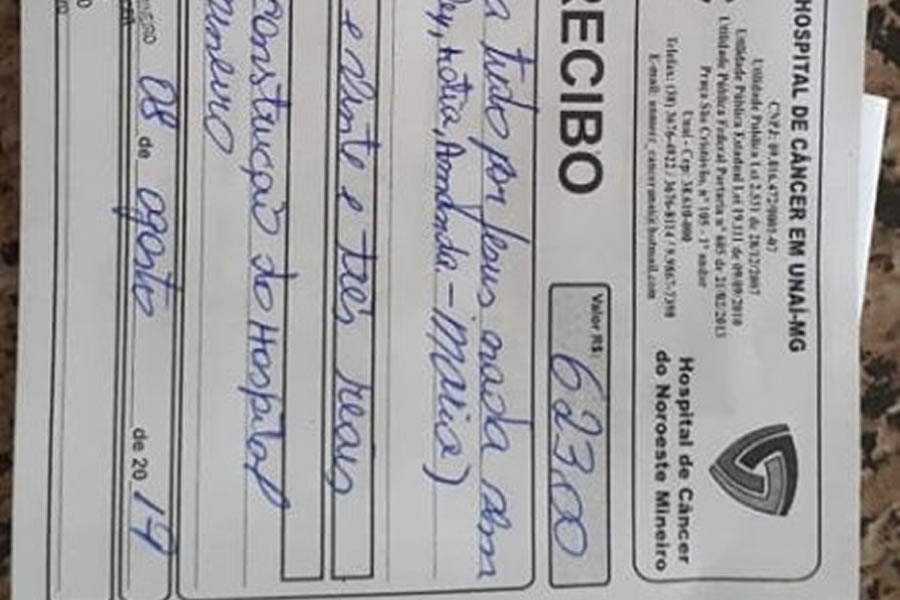 HOSPITAL DE CÂNCER EM UNAÍ-MG
CNPJ: 09.816.472/0001-07
Utilidade Pública Lei 2.531 de 28/12/2007
Utilidade Pública Estadual Lei 19.111 de 09/09/2010
Utilidade Pública Federal Portaria nº 605 de 21/02/2013
Praça São Cristóvão, nº 105 - 1º andar
Unaí - Cep: 38.610-000
Telefax: (38) 3676-4922 / 3676-8114 /
Hospital de Câncer
do Noroeste Mineiro
RECIBO
Valor R$:
623,00
a tudo por Jesus nada sem
Maria)
e vinte e três reais
construção do Hospital
mineiro
08 de agosto de 2019